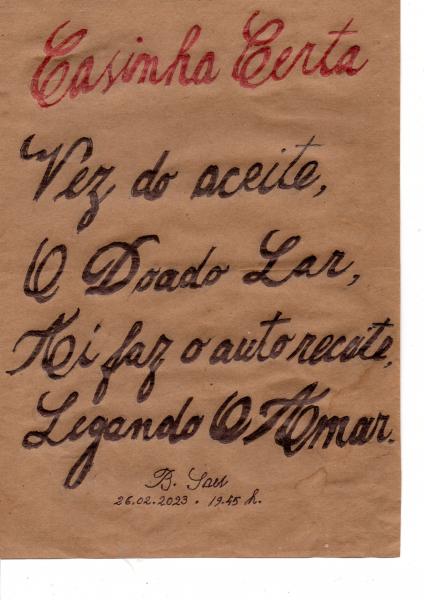 Casinha Certa
Vez do aceite,
O Doado Lar,
Aí faz o auto recate,
Legando O Amar.
B.
26.02.2023 . 19.45 h.